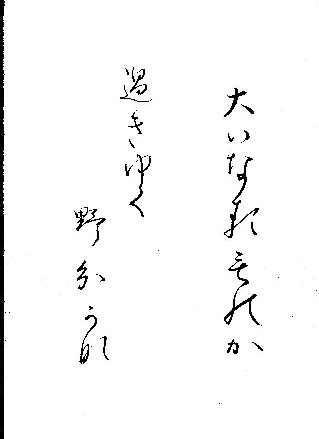 大いなるものが
過きゆく
野分かな